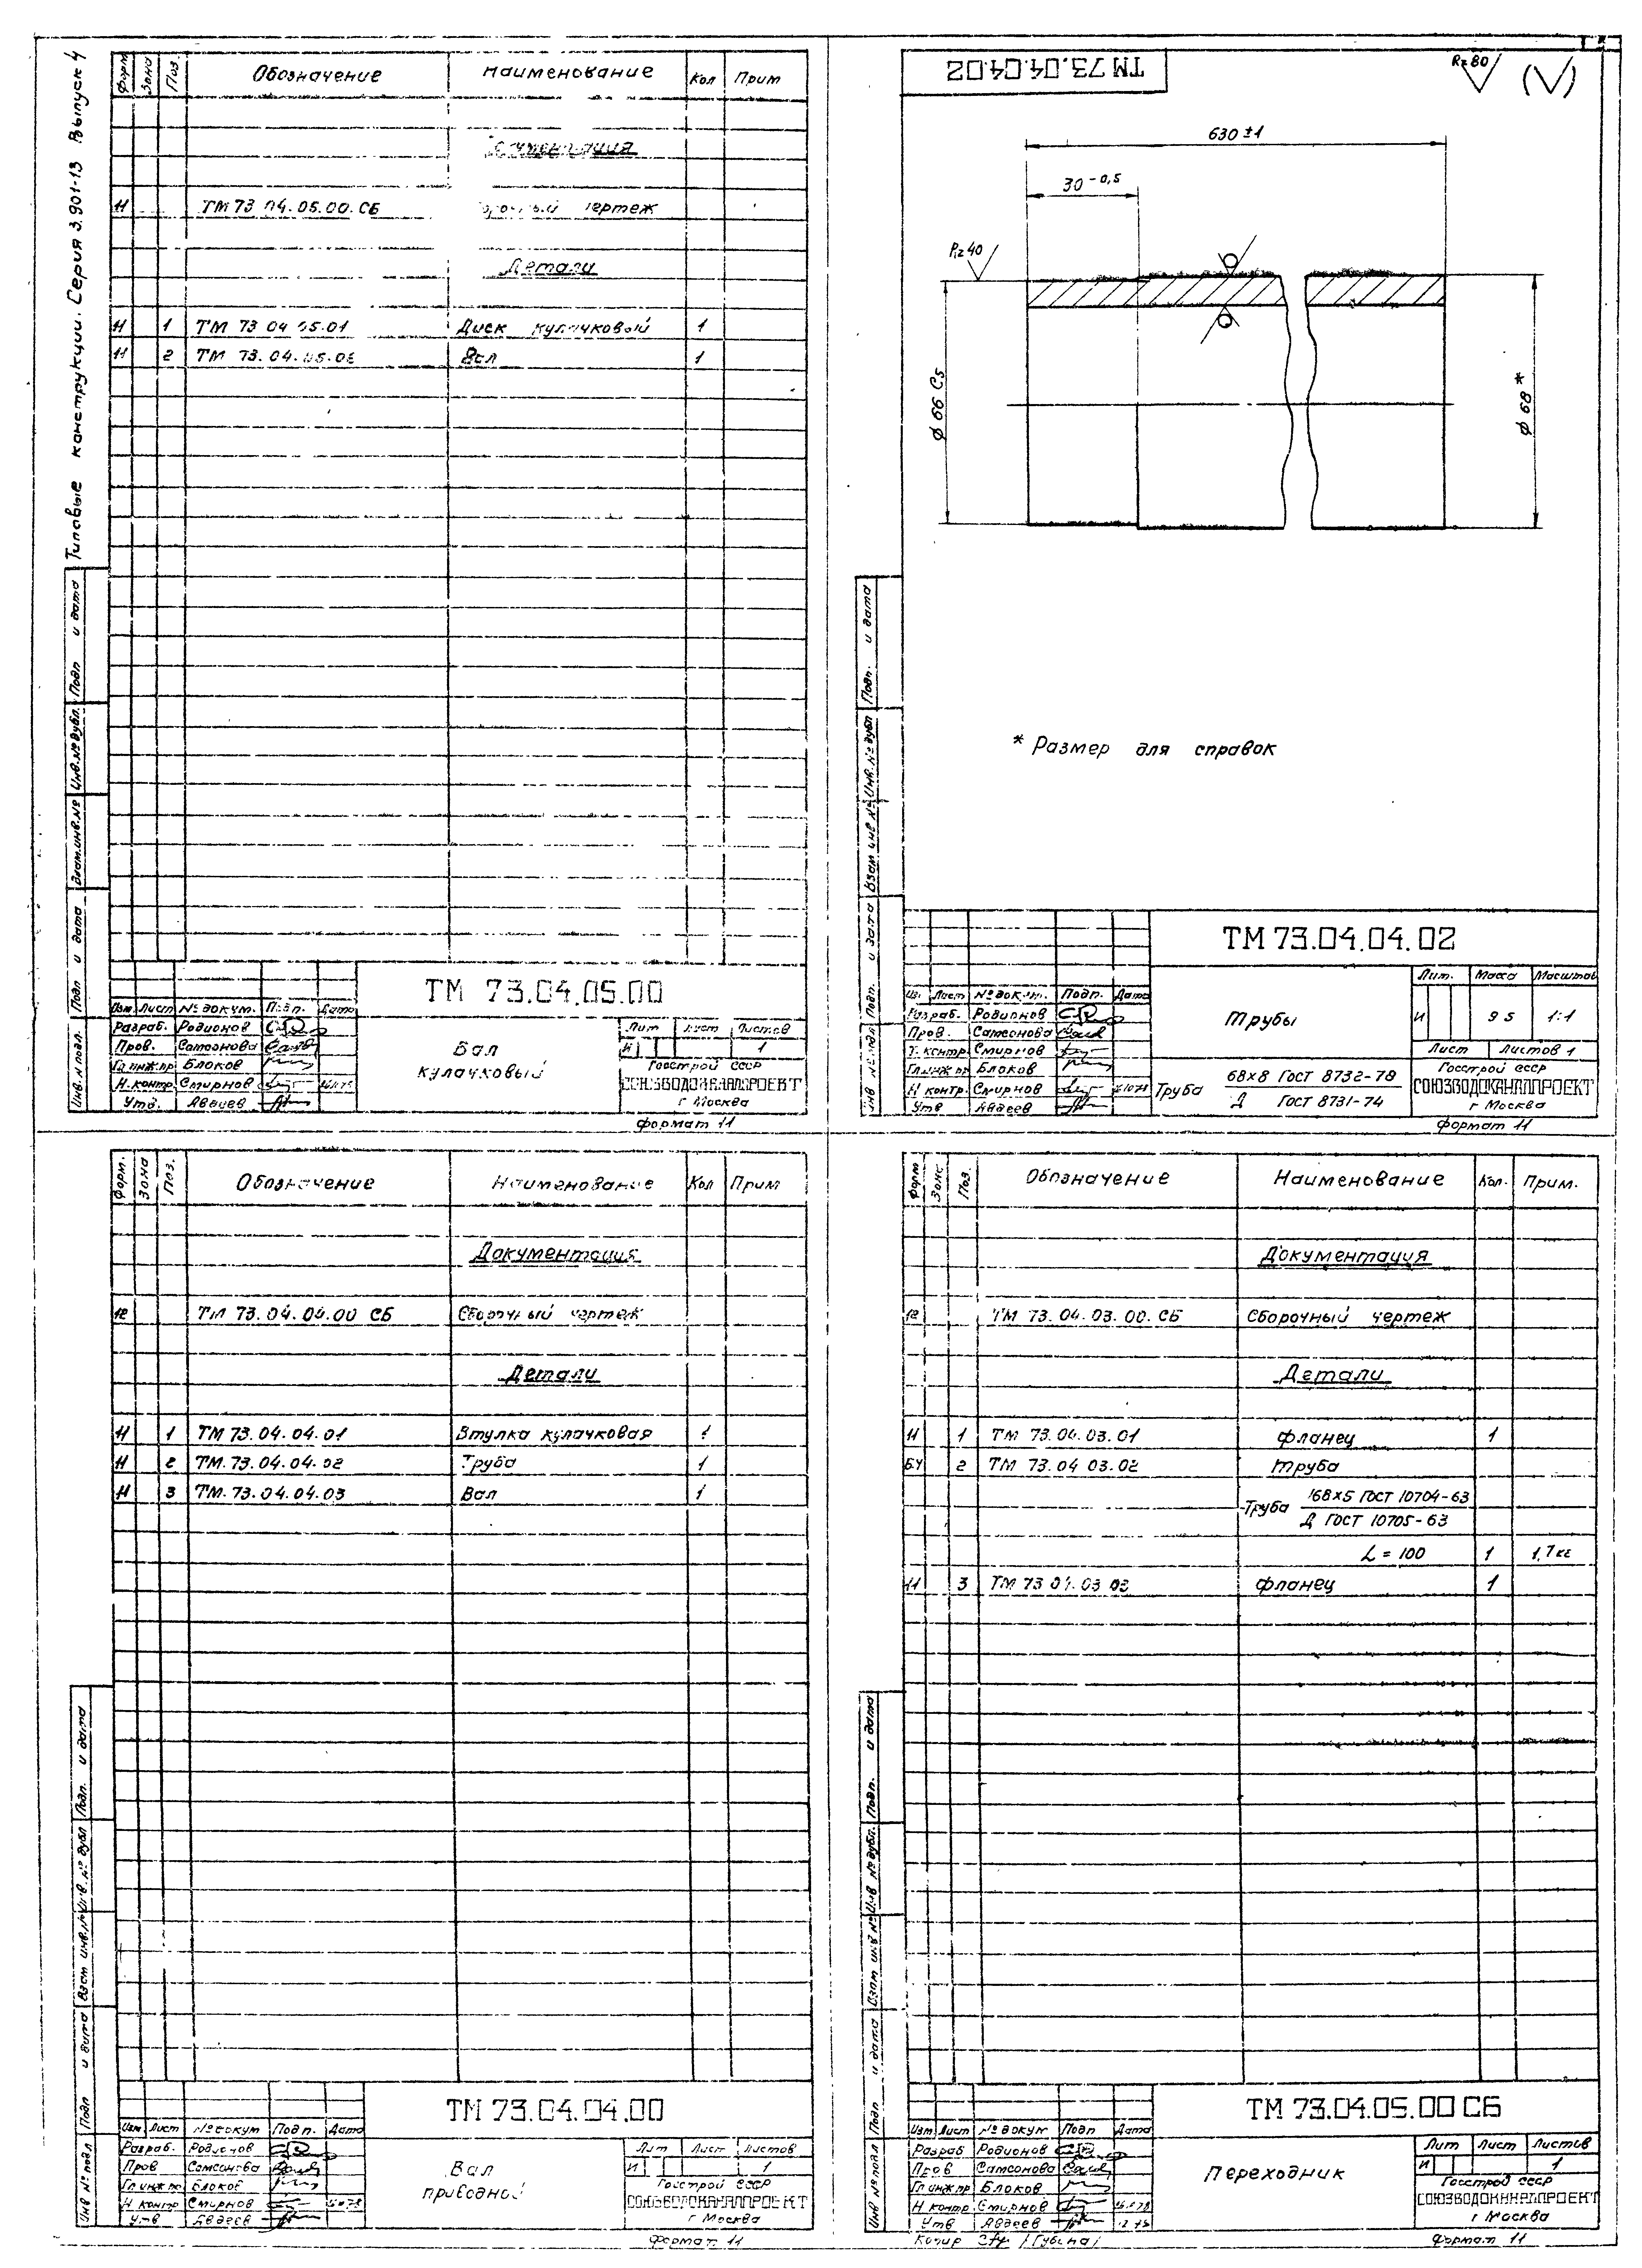 Типовые конструкции. Серия 3.901-13 Выпуск 4
Форм Зона Поз. Обозначение Наименование Кол Прим
11 ТМ 73 04.05.00.СБ чертеж
Детали
11 1 ТМ 73 04 05.01 Диск кулачковый 1
11 2 ТМ 73.04.05.02 Вал 1
Инв.№ подл. Подп и дата Взам.инв.№ Инв.№ дубл. Подп и дата
ТМ 73.04.05.00
Изм Лист № докум. Подп. Дата
Разраб. Родионов
Пров. Самсонова
Гл.инж.пр Блоков
Н.контр. Смирнов
Утв. Авдеев
Вал
кулачковый
Лит Лист Листов
И 1
Госстрой СССР
СОЮЗВОДОКАНАЛПРОЕКТ
г Москва
Формат 11
ТМ 73.04.04.02
Rz 80 (√)
630 ±1
30 -0,5
Rz 40
Ø 66 С5
Ø 68 *
* Размер для справок
Инв № подл Подп. и дата Взам инв № Инв.№ дубл Подп. и дата
ТМ 73.04.04.02
Изм. Лист № докум. Подп. Дата
Разраб. Родионов
Пров. Самсонова
Т. контр Смирнов
Гл.инж пр Блоков
Н контр. Смирнов
Утв Авдеев
Трубы
Лит. Масса Масштаб
И 9 5 1:1
Лист Листов 1
Труба 68×8 ГОСТ 8732-78
Д ГОСТ 8731-74
Госстрой СССР
СОЮЗВОДОКАНАЛПРОЕКТ
г Москва
Формат 11
Форм. Зона Поз. Обозначение Наименование Кол Прим
Документация
12 ТМ 73.04.04.00 СБ Сборочный чертеж
Детали
11 1 ТМ 73.04.04.01 Втулка кулачковая 1
11 2 ТМ.73.04.04.02 Труба 1
11 3 ТМ.73.04.04.03 Вал 1
Инв № подл Подп и дата Взам инв.№ Инв.№ дубл Подп. и дата
ТМ 73.04.04.00
Изм Лист № докум Подп. Дата
Разраб. Родионов
Пров Самсонова
Гл инж пр Блоков
Н контр Смирнов
Утв Авдеев
Вал
приводной
Лит Лист Листов
И 1
Госстрой СССР
СОЮЗВОДОКАНАЛПРОЕКТ
г Москва
Формат 11
Форм Зона Поз. Обозначение Наименование Кол. Прим.
Документация
12 ТМ 73.04.03.00.СБ Сборочный чертеж
Детали
11 1 ТМ 73.04.03.01 Фланец 1
БЧ 2 ТМ 73.04 03.02 Труба
Труба 168×5 ГОСТ 10704-63
Д ГОСТ 10705-63
L = 100 1 1,7 кг
11 3 ТМ 73 04.03 03 Фланец 1
Инв № подл Подп и дата Взам инв № Инв № дубл. Подп. и дата
ТМ 73.04.05.00 СБ
Изм Лист № докум Подп Дата
Разраб Родионов
Пров Самсонова
Гл инж пр Блоков
Н контр Смирнов
Утв Авдеев
Переходник
Лит Лист Листов
И 1
Госстрой СССР
СОЮЗВОДОКАНАЛПРОЕКТ
г Москва
Копир
Формат 11